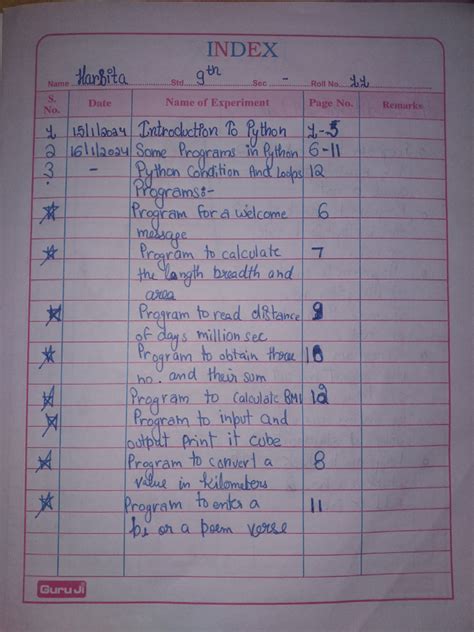 INDEX
Name Harsita Std 9th Sec - Roll No. 22
S. No. Date Name of Experiment Page No. Remarks
1 15/1/2024 Introduction To Python 1-5
2 16/1/2024 Some Programs in Python 6-11
3 - Python Condition And Loops 12
Programs:-
Program for a welcome 6
message
Program to calculate 7
the length breadth and
area
Program to read distance 9
of days million sec
Program to obtain three 10
no. and their sum
Program to Calculate BMI 12
Program to input and
output print it cube
Program to convert a 8
value in kilometers
Program to enter a 11
or a poem verse
Guru Ji